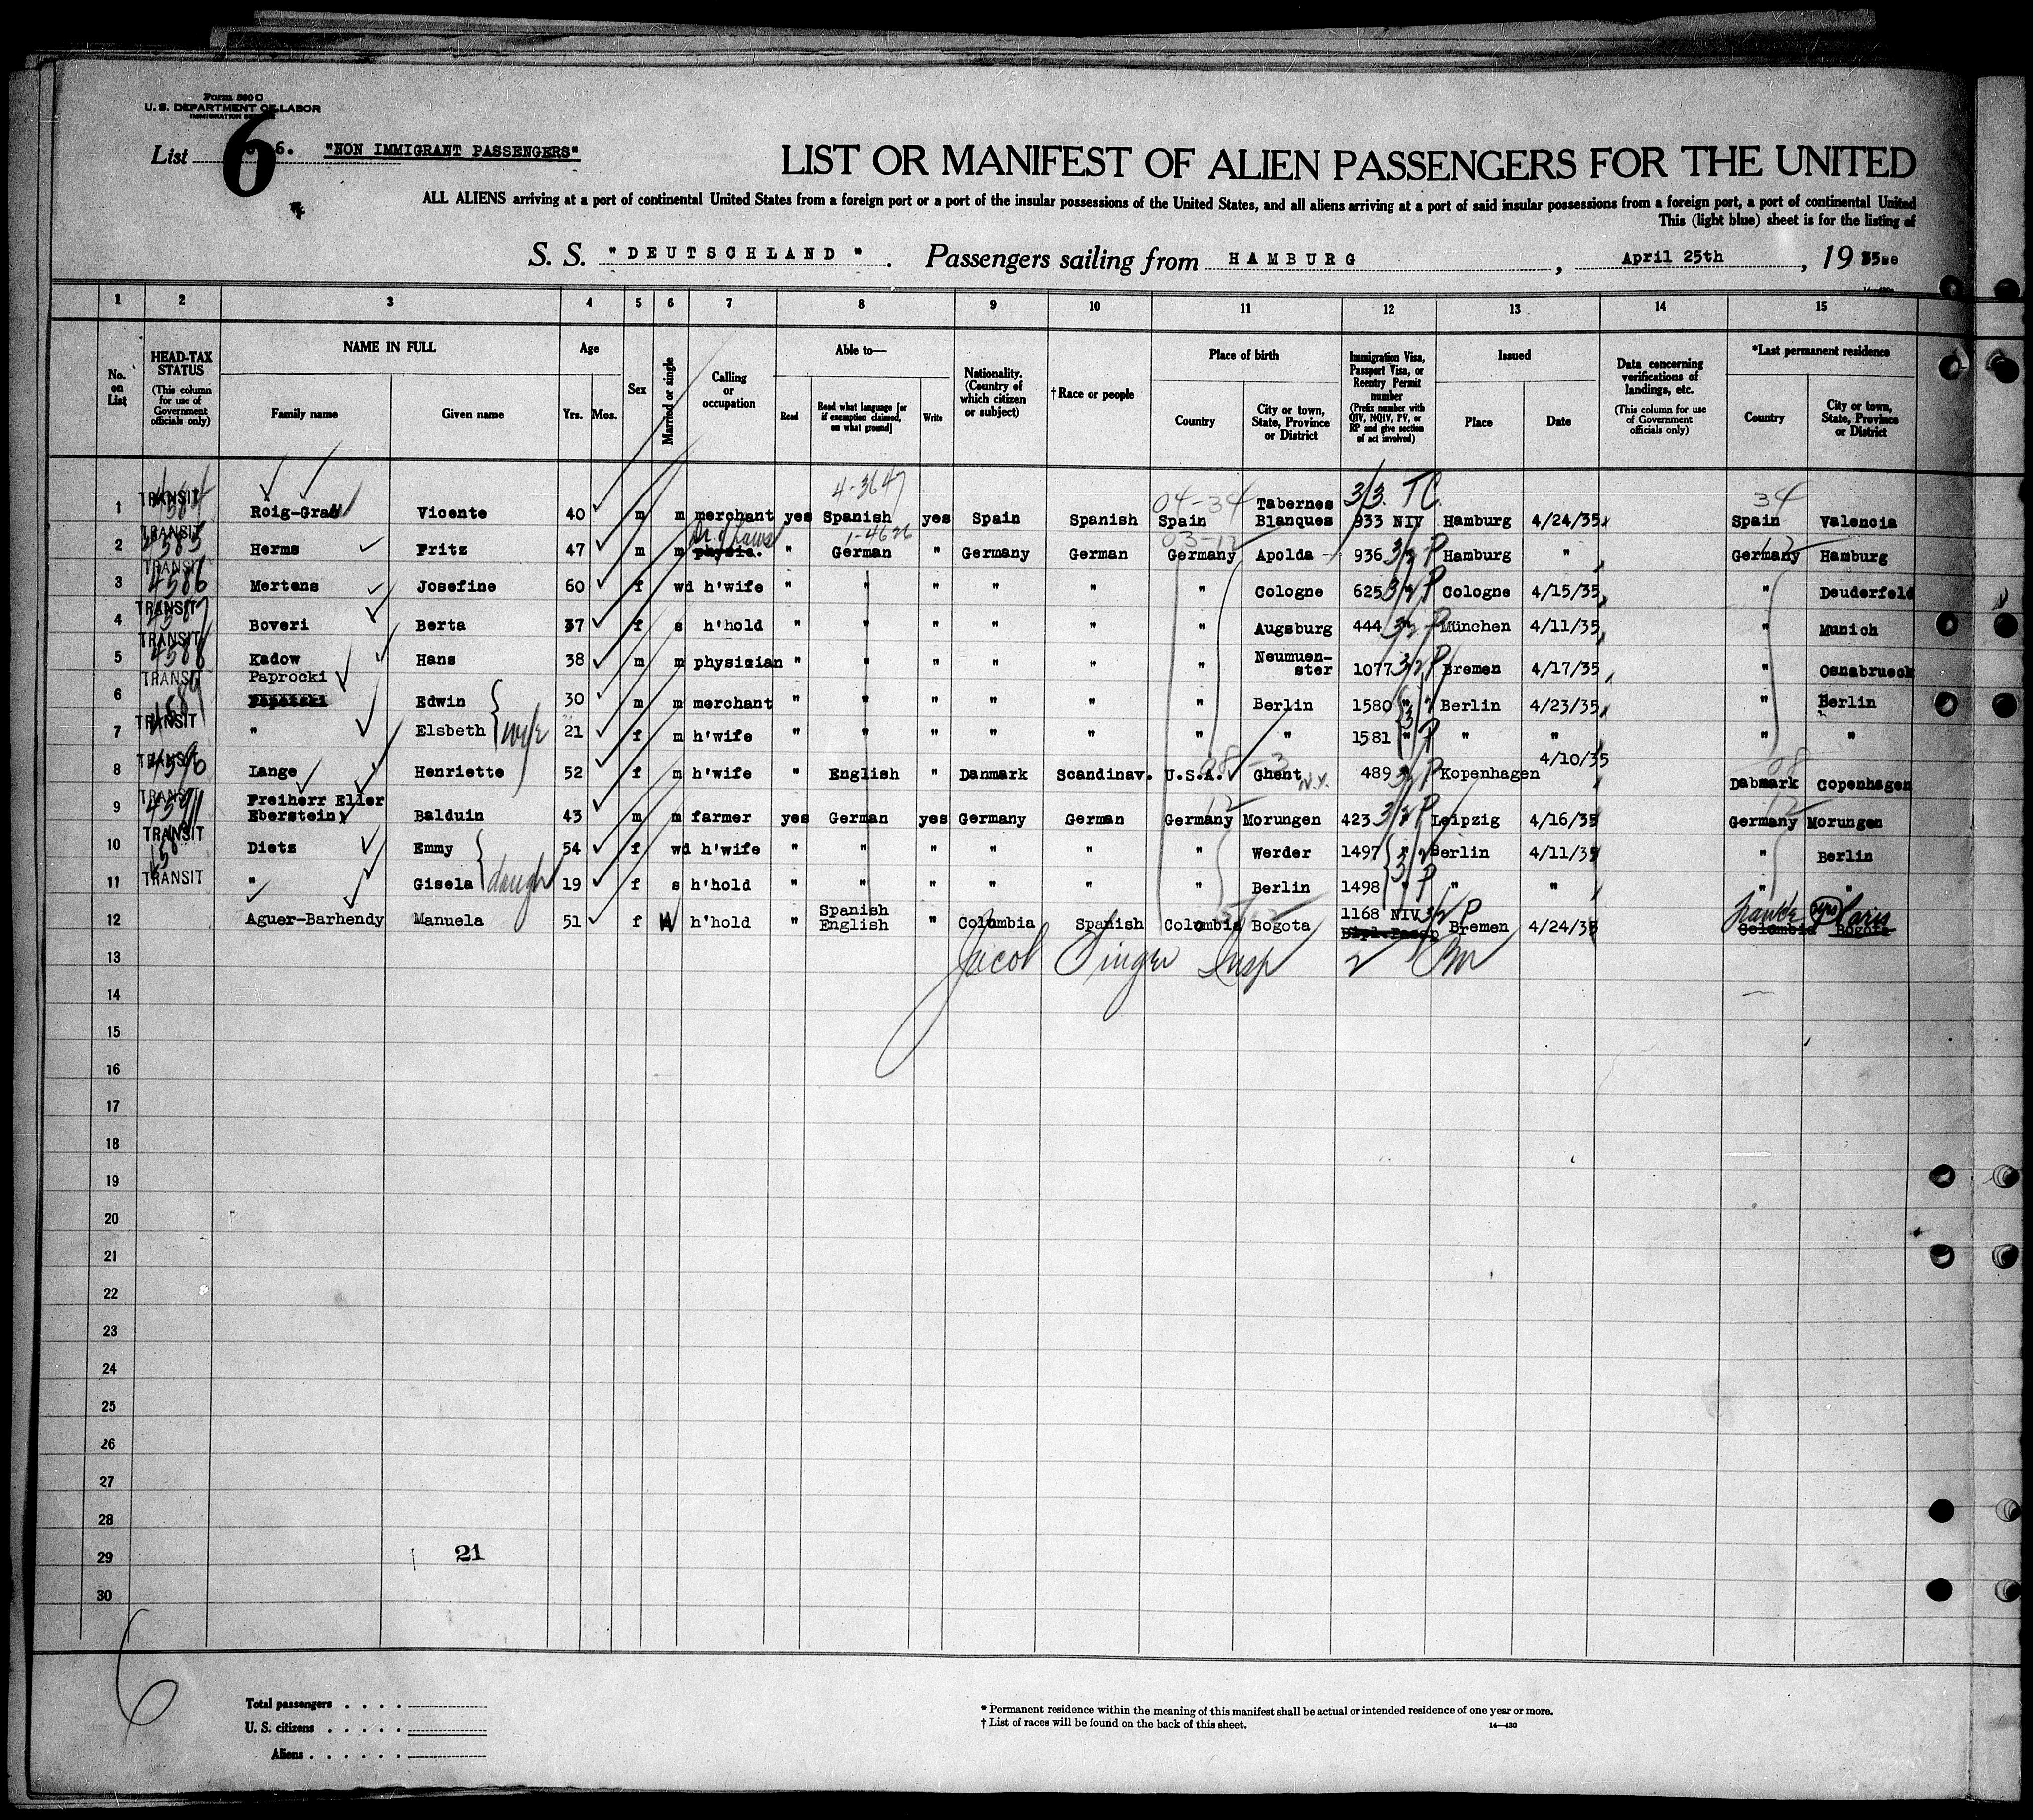 Form 500 C
U. S. DEPARTMENT OF LABOR
IMMIGRATION
List 6 6. "NON IMMIGRANT PASSENGERS"
LIST OR MANIFEST OF ALIEN PASSENGERS FOR THE UNITED
ALL ALIENS arriving at a port of continental United States from a foreign port or a port of the insular possessions of the United States, and all aliens arriving at a port of said insular possessions from a foreign port, a port of continental United
This (light blue) sheet is for the listing of
S. S. "DEUTSCHLAND". Passengers sailing from HAMBURG, April 25th, 19 35
1 2 3 4 5 6 7 8 9 10 11 12 13 14 15
No. on List
HEAD-TAX STATUS (This column for use of Government officials only)
NAME IN FULL
Family name Given name
Age
Yrs. Mos.
Sex
Married or single
Calling or occupation
Able to—
Read Read what language [or if exemption claimed, on what ground] Write
Nationality. (Country of which citizen or subject)
†Race or people
Place of birth
Country City or town, State, Province or District
Immigration Visa, Passport Visa, or Reentry Permit number (Prefix number with QIV, NQIV, PV, or RP and give section of act involved)
Issued
Place Date
Data concerning verifications of landings, etc. (This column for use of Government officials only)
*Last permanent residence
Country City or town, State, Province or District
4-3647 04-34 3/3. TC 34
1 TRANSIT 4584 Roig-Grau Vicente 40 m m merchant yes Spanish yes Spain Spanish Spain Tabernes Blanques 933 NIV Hamburg 4/24/35 Spain Valencia
Dr. of Laws 1-4626
2 TRANSIT 4585 Herms Fritz 47 m m physic. " German " Germany German Germany Apolda 936 3/2 P Hamburg " Germany Hamburg
3 TRANSIT 4586 Mertens Josefine 60 f wd h'wife " " " " " " Cologne 625 3/2 P Cologne 4/15/35 " Deuderfeld
4 TRANSIT 4587 Boveri Berta 37 f s h'hold " " " " " " Augsburg 444 3/2 P München 4/11/35 " Munich
5 TRANSIT 4588 Kadow Hans 38 m m physician " " " " " " Neumuenster 1077 3/2 P Bremen 4/17/35 " Osnabrueck
Paprocki
6 TRANSIT 4589 Edwin 30 m m merchant " " " " " " Berlin 1580 " Berlin 4/23/35 " Berlin
7 TRANSIT " Elsbeth wife 21 f m h'wife " " " " " " " 1581 " P " " " "
8 TRANSIT 4590 Lange Henriette 52 f m h'wife " English " Danmark Scandinav. U.S.A. Ghent N.Y. 489 3/2 P Kopenhagen 4/10/35 Dabmark Copenhagen
9 TRANSIT 4591 Freiherr Eller Eberstein Balduin 43 m m farmer yes German yes Germany German Germany Morungen 423 3/2 P Leipzig 4/16/35 Germany Morungen
10 TRANSIT Dietz Emmy 54 f wd h'wife " " " " " " Werder 1497 " Berlin 4/11/35 " Berlin
11 TRANSIT " Gisela daugh 19 f s h'hold " " " " " " Berlin 1498 " P " " " "
12 Aguer-Barhendy Manuela 51 f W h'hold " Spanish English " Colombia Spanish Colombia Bogota 1168 NIV 3/2 P Dipl.Passp Bremen 4/24/35 France Paris Colombia Bogota
13 Jacob Singer Insp
14
15
16
17
18
19
20
21
22
23
24
25
26
27
28
29 21
30
6
Total passengers
U. S. citizens
Aliens
* Permanent residence within the meaning of this manifest shall be actual or intended residence of one year or more.
† List of races will be found on the back of this sheet.
14—430